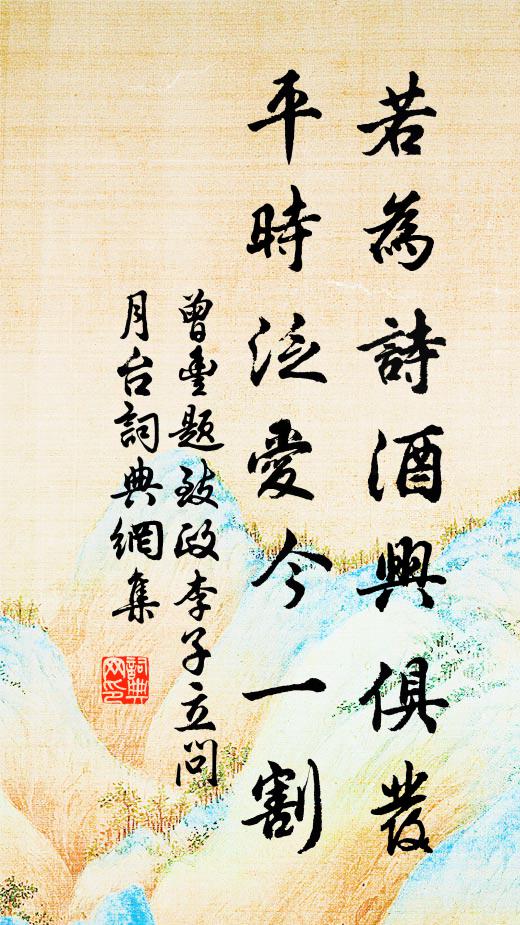 若為詩酒興俱發
平時泛愛今一割
曾豐題致政李子立問
月台詞典網集
詞典
网印